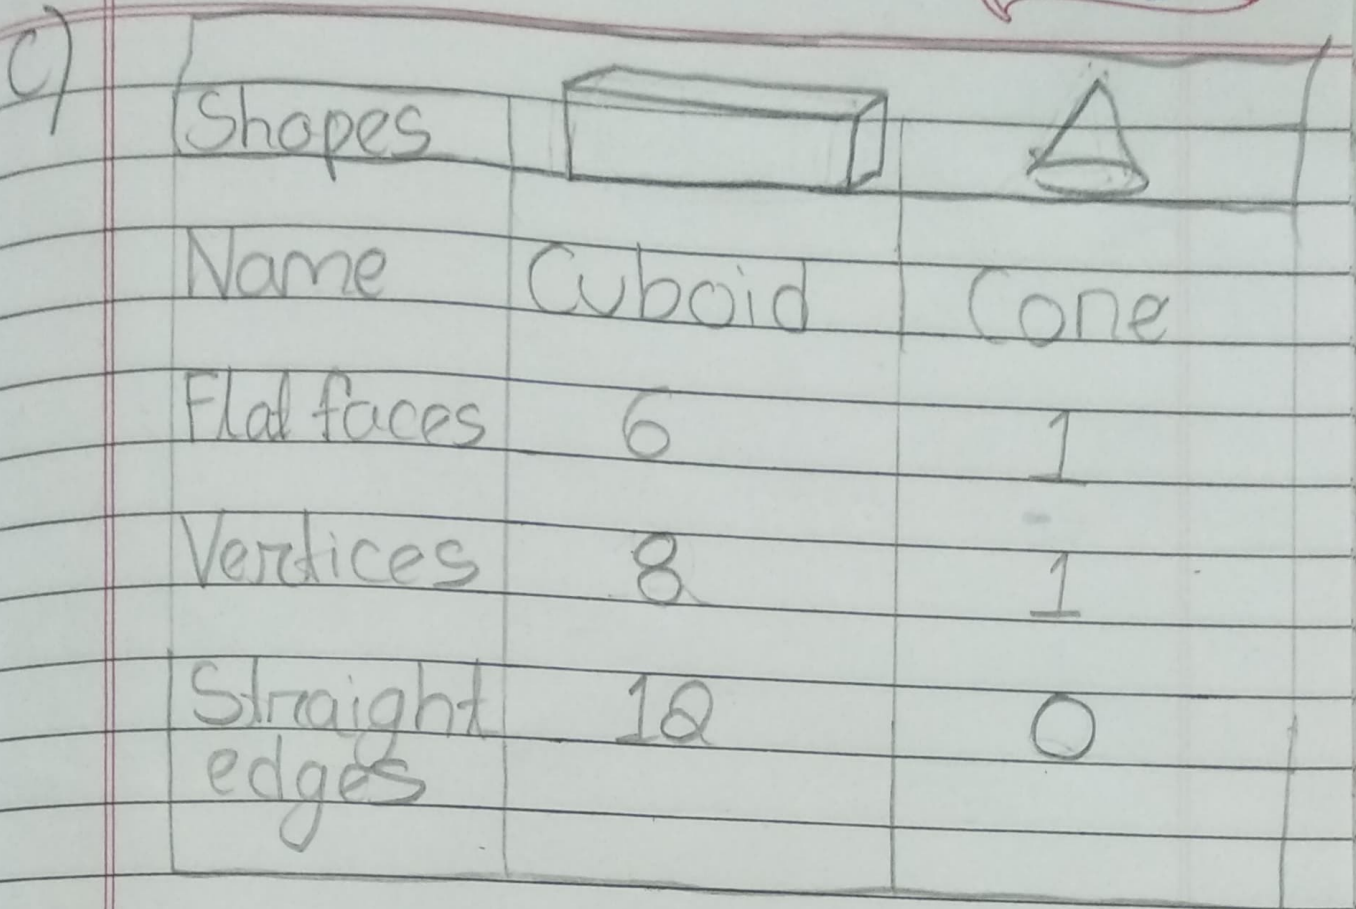 c)
Shapes
Name Cuboid Cone
Flat faces 6 1
Vertices 8 1
Straight 12 0
edges